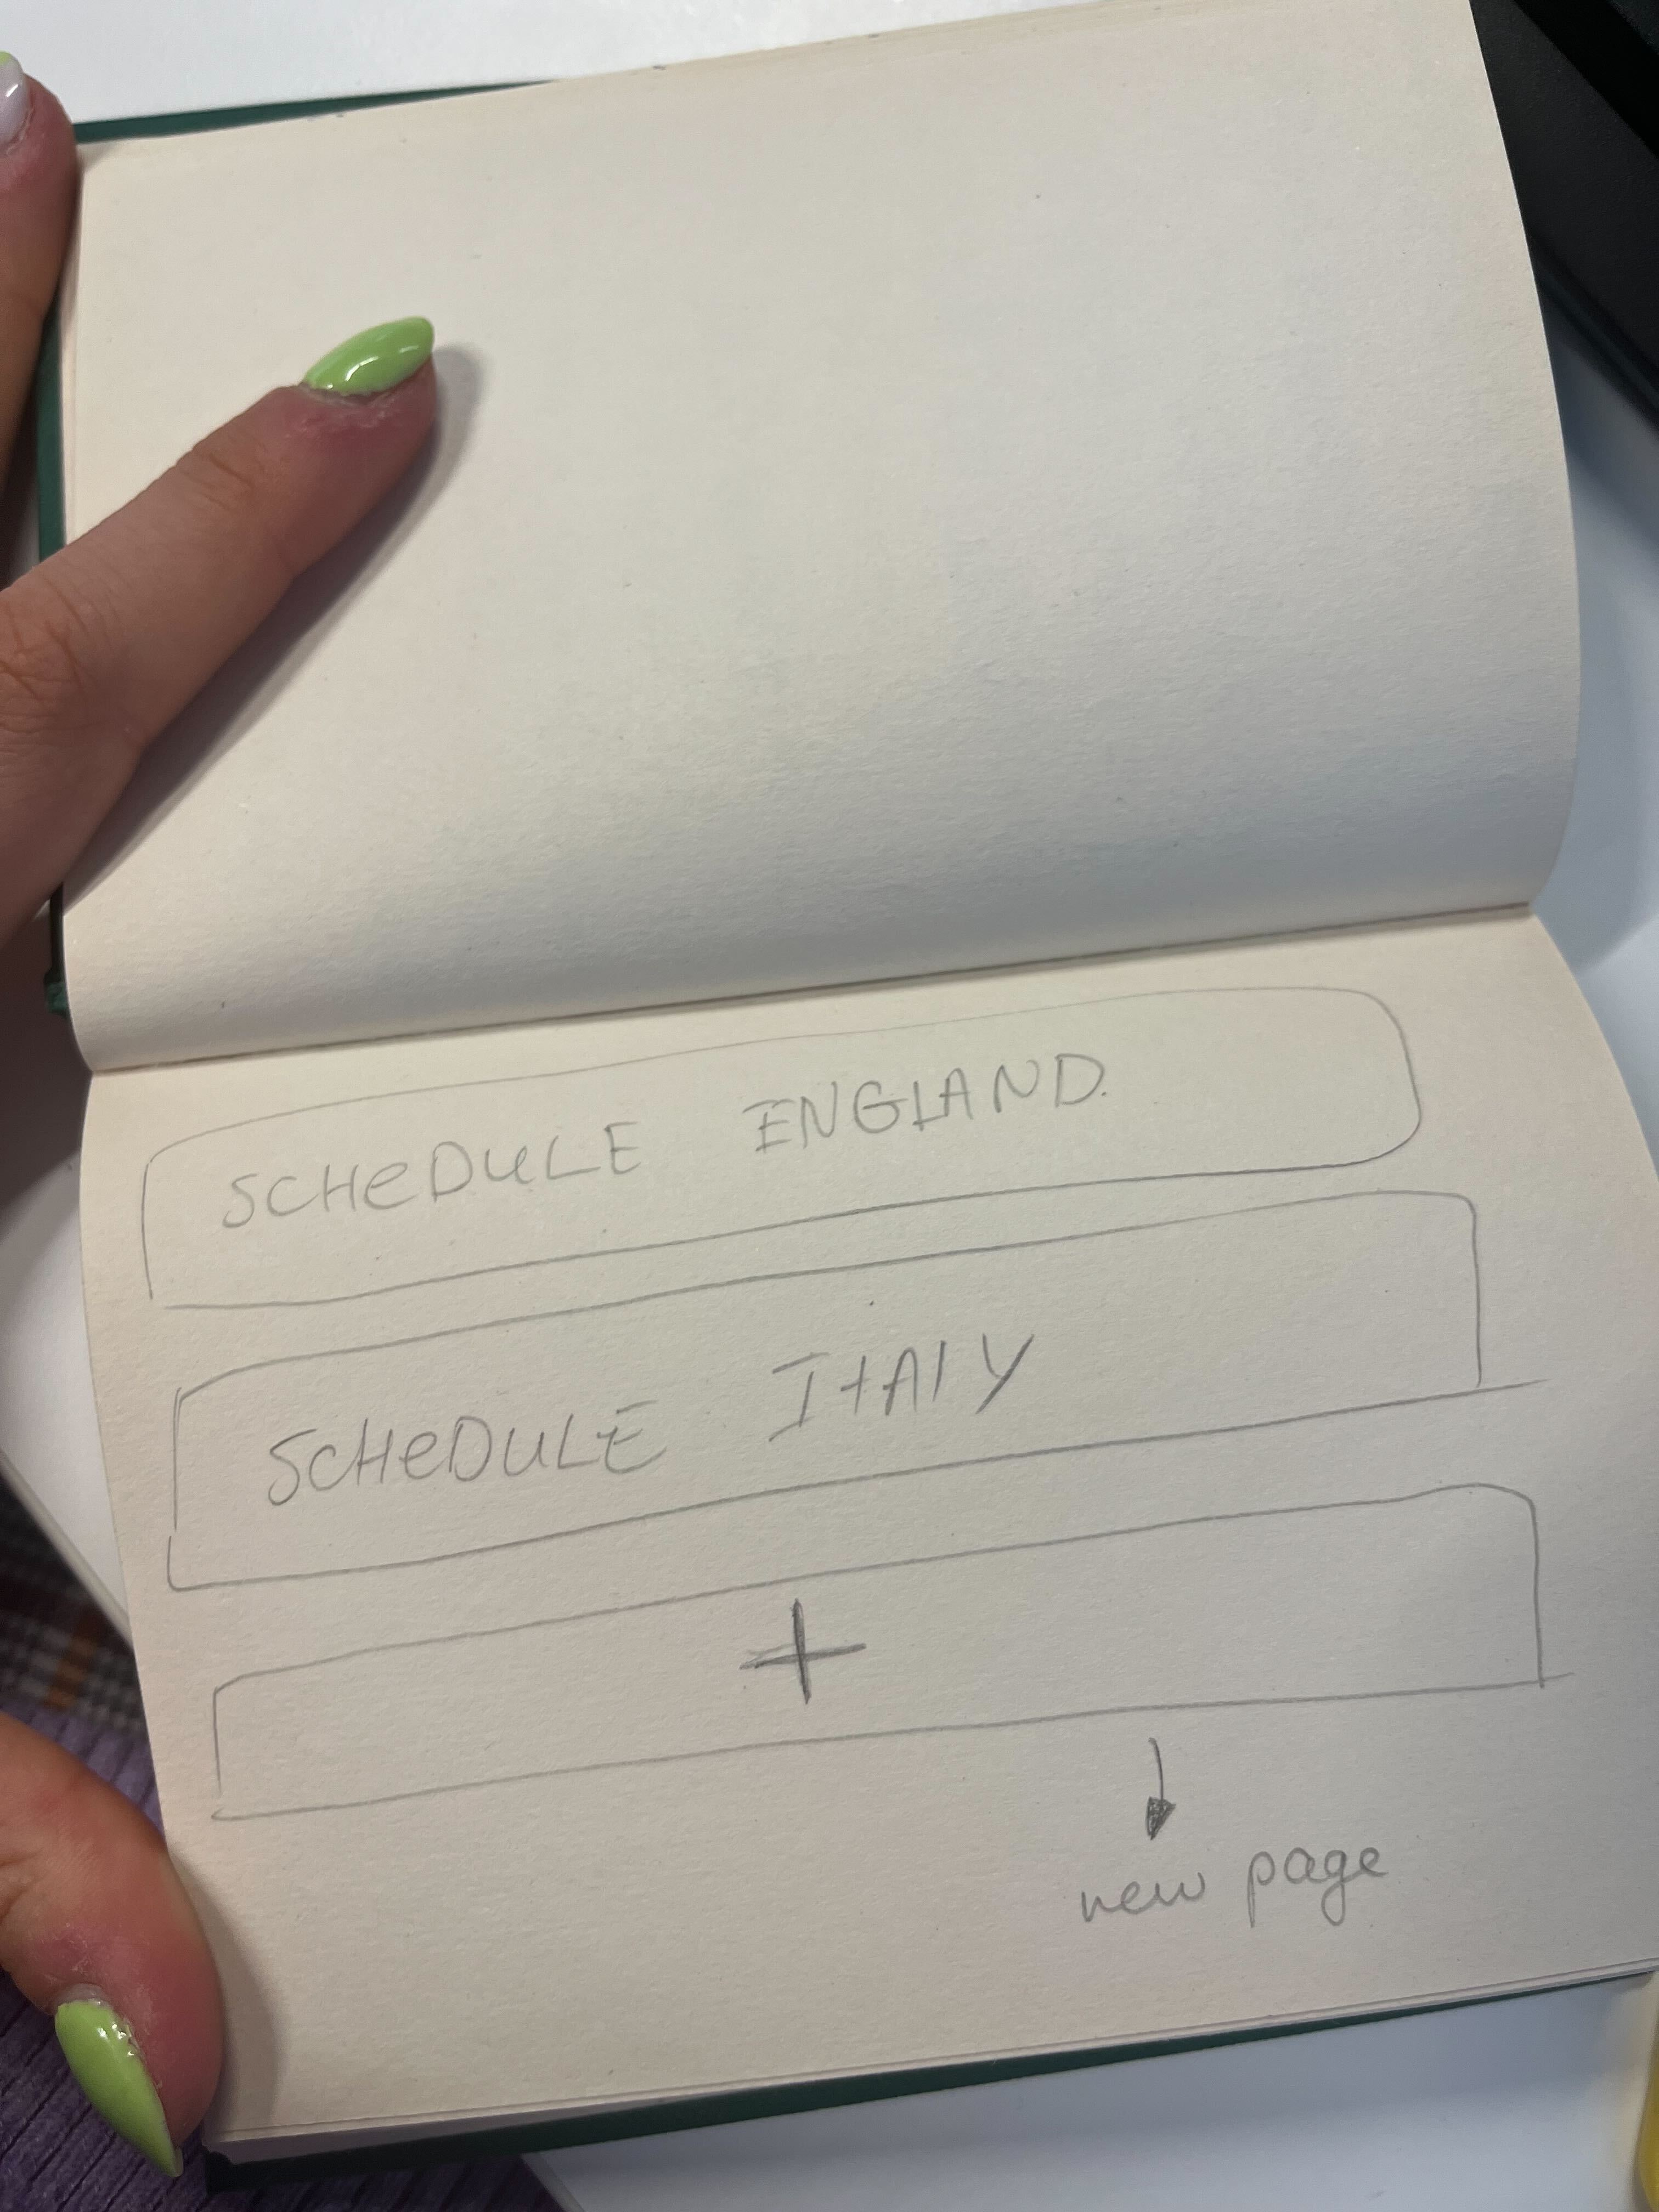 SCHeDULE ENGLAND.
SCHeDULE ITALY
+
new page